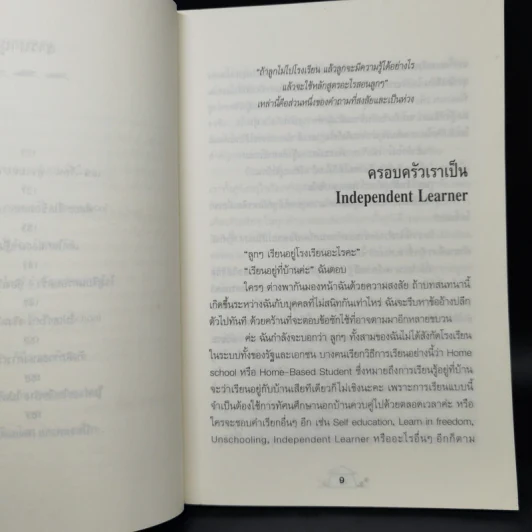 "ถ้าลูกไม่ไปโรงเรียน แล้วลูกจะมีความรู้ได้อย่างไร
แล้วจะใช้หลักสูตรอะไรสอนลูกๆ"
เหล่านี้คือส่วนหนึ่งของคำถามที่สงสัยและเป็นห่วง
ครอบครัวเราเป็น
Independent Learner
"ลูกๆ เรียนอยู่โรงเรียนอะไรคะ"
"เรียนอยู่ที่บ้านค่ะ" ฉันตอบ
ใครๆ ต่างพากันมองหน้าฉันด้วยความสงสัย ถ้าบทสนทนานี้
เกิดขึ้นระหว่างฉันกับบุคคลที่ไม่สนิทกันเท่าไหร่ ฉันจะรีบหาข้ออ้างปลีก
ตัวไปทันที ด้วยคร้านที่จะตอบข้อซักไซ้ที่อาจตามมาอีกหลายขบวน
ค่ะ ฉันกำลังจะบอกว่า ลูกๆ ทั้งสามของฉันไม่ได้สังกัดโรงเรียน
ในระบบทั้งของรัฐและเอกชน บางคนเรียกวิธีการเรียนอย่างนี้ว่า Home
school หรือ Home-Based Student ซึ่งหมายถึงการเรียนรู้อยู่ที่บ้าน
จะว่าเรียนอยู่กับบ้านเสียทีเดียวก็ไม่เชิงนะคะ เพราะการเรียนแบบนี้
จำเป็นต้องใช้การทัศนศึกษานอกบ้านควบคู่ไปด้วยตลอดเวลาค่ะ หรือ
ใครจะชอบคำเรียกอื่นๆ อีก เช่น Self education, Learn in freedom,
Unschooling, Independent Learner หรืออะไรอื่นๆ อีกก็ตาม
9